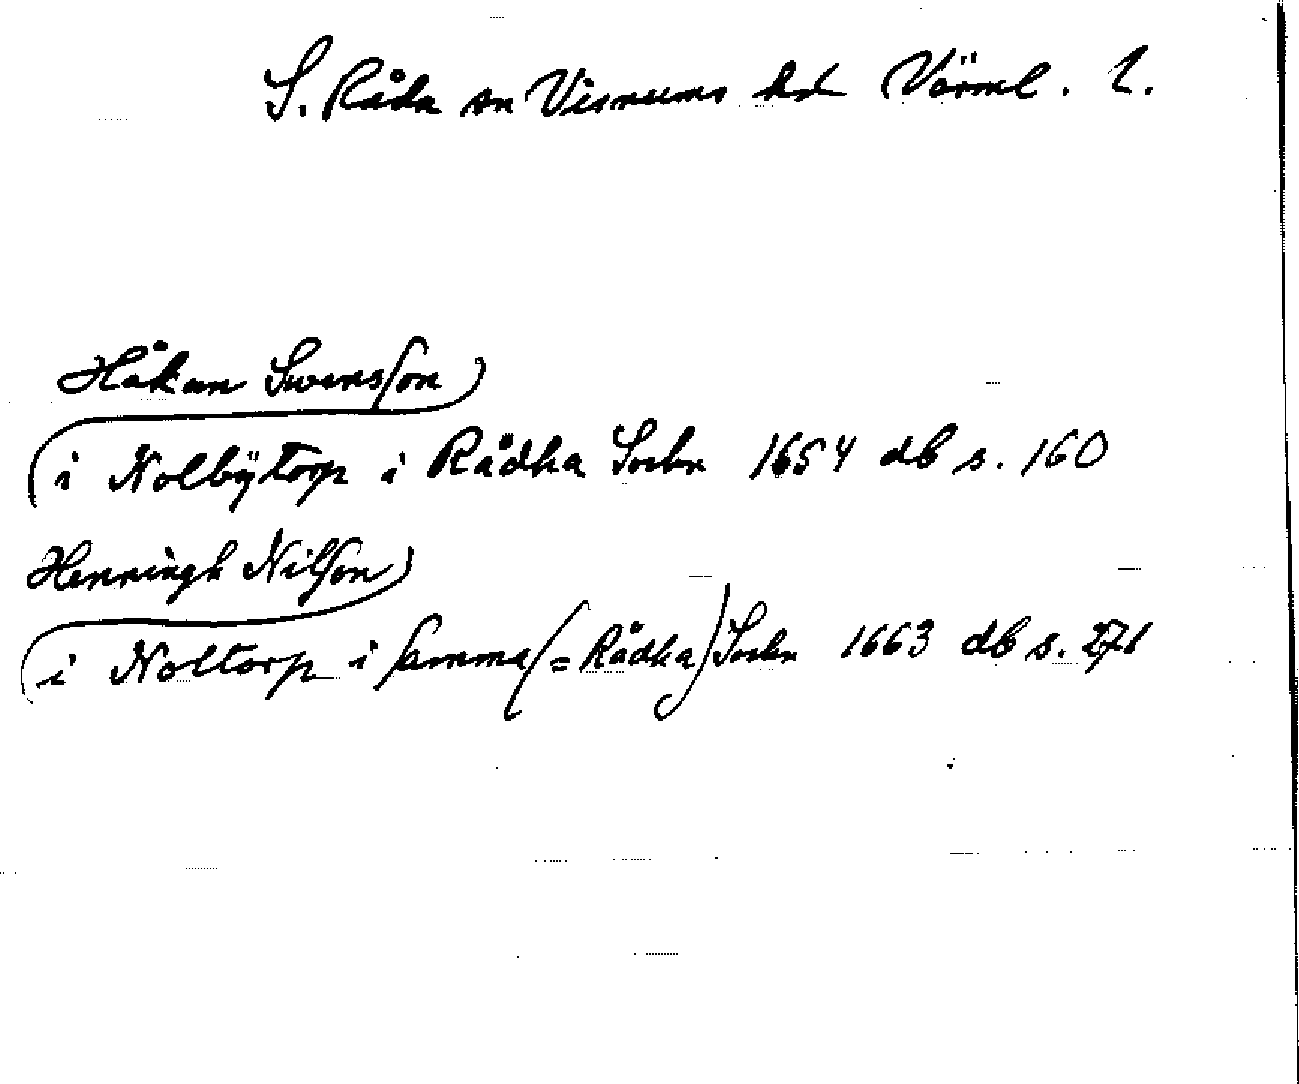 S. Råda sn Visnums hd Värml. l.
Håkan Swensson)
(i Nolbÿtorp i Rådha Sochn 1654 db s. 160
Henningh Nilson)
(i Noltorp i samma (= Rådha) Sochn 1663 db s. 271